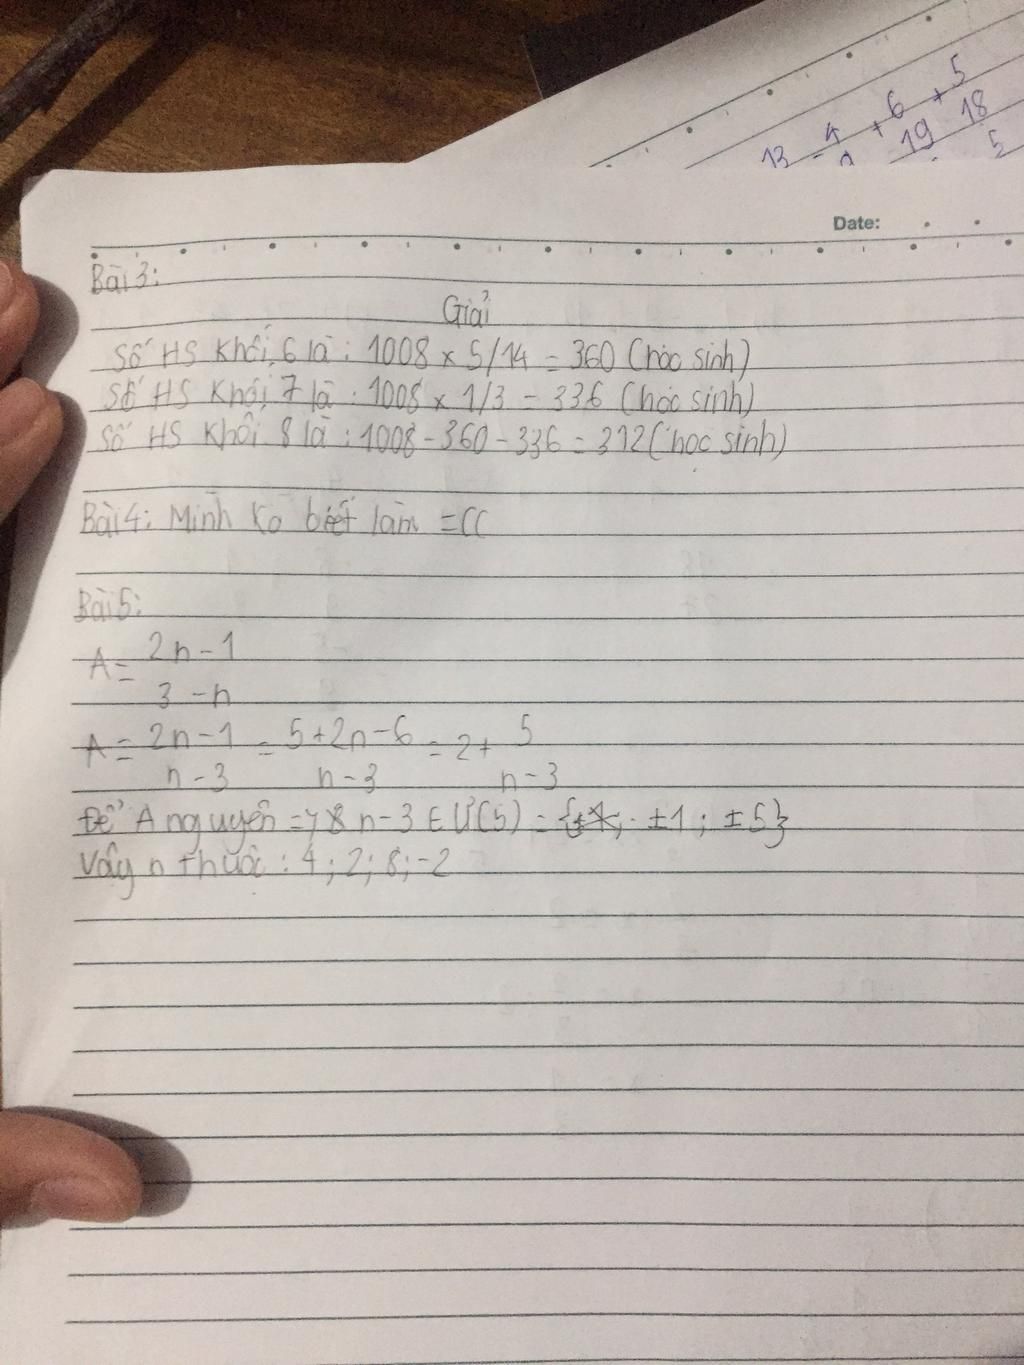 13 - 4 + 6 + 5
19 18
5
Date:
Bài 3:
Giải
Số HS Khối 6 là : 1008 x 5/14 = 360 (học sinh)
Số HS Khối 7 là : 1008 x 1/3 = 336 (học sinh)
Số HS Khối 8 là : 1008 - 360 - 336 = 312 (học sinh)
Bài 4: Mình Ko biết làm =((
Bài 5:
A = 2n - 1
3 - n
A = 2n - 1 = 5 + 2n - 6 = 2 + 5
n - 3 n - 3 n - 3
Để A nguyên => n - 3 ∈ Ư(5) = { ±1 ; ±5 }
Vậy n thuộc : 4 ; 2 ; 8 ; -2